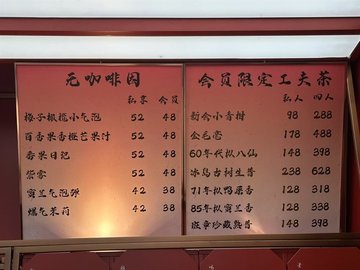 无咖啡因
私享 会员
椰子橄榄小气泡 52 48
百香果香橙芒果汁 52 48
香果日记 52 48
紫雪 52 48
气泡弹 42 38
茉莉 42 38
会员限定工夫茶
私人 四人
新会小青柑 98 288
金毛毫 178 488
60年代拟八仙 148 398
冰岛古树生普 238 628
71年拟鸭屎香 128 318
85年拟宝兰香 128 338
班章珍藏熟普 148 398